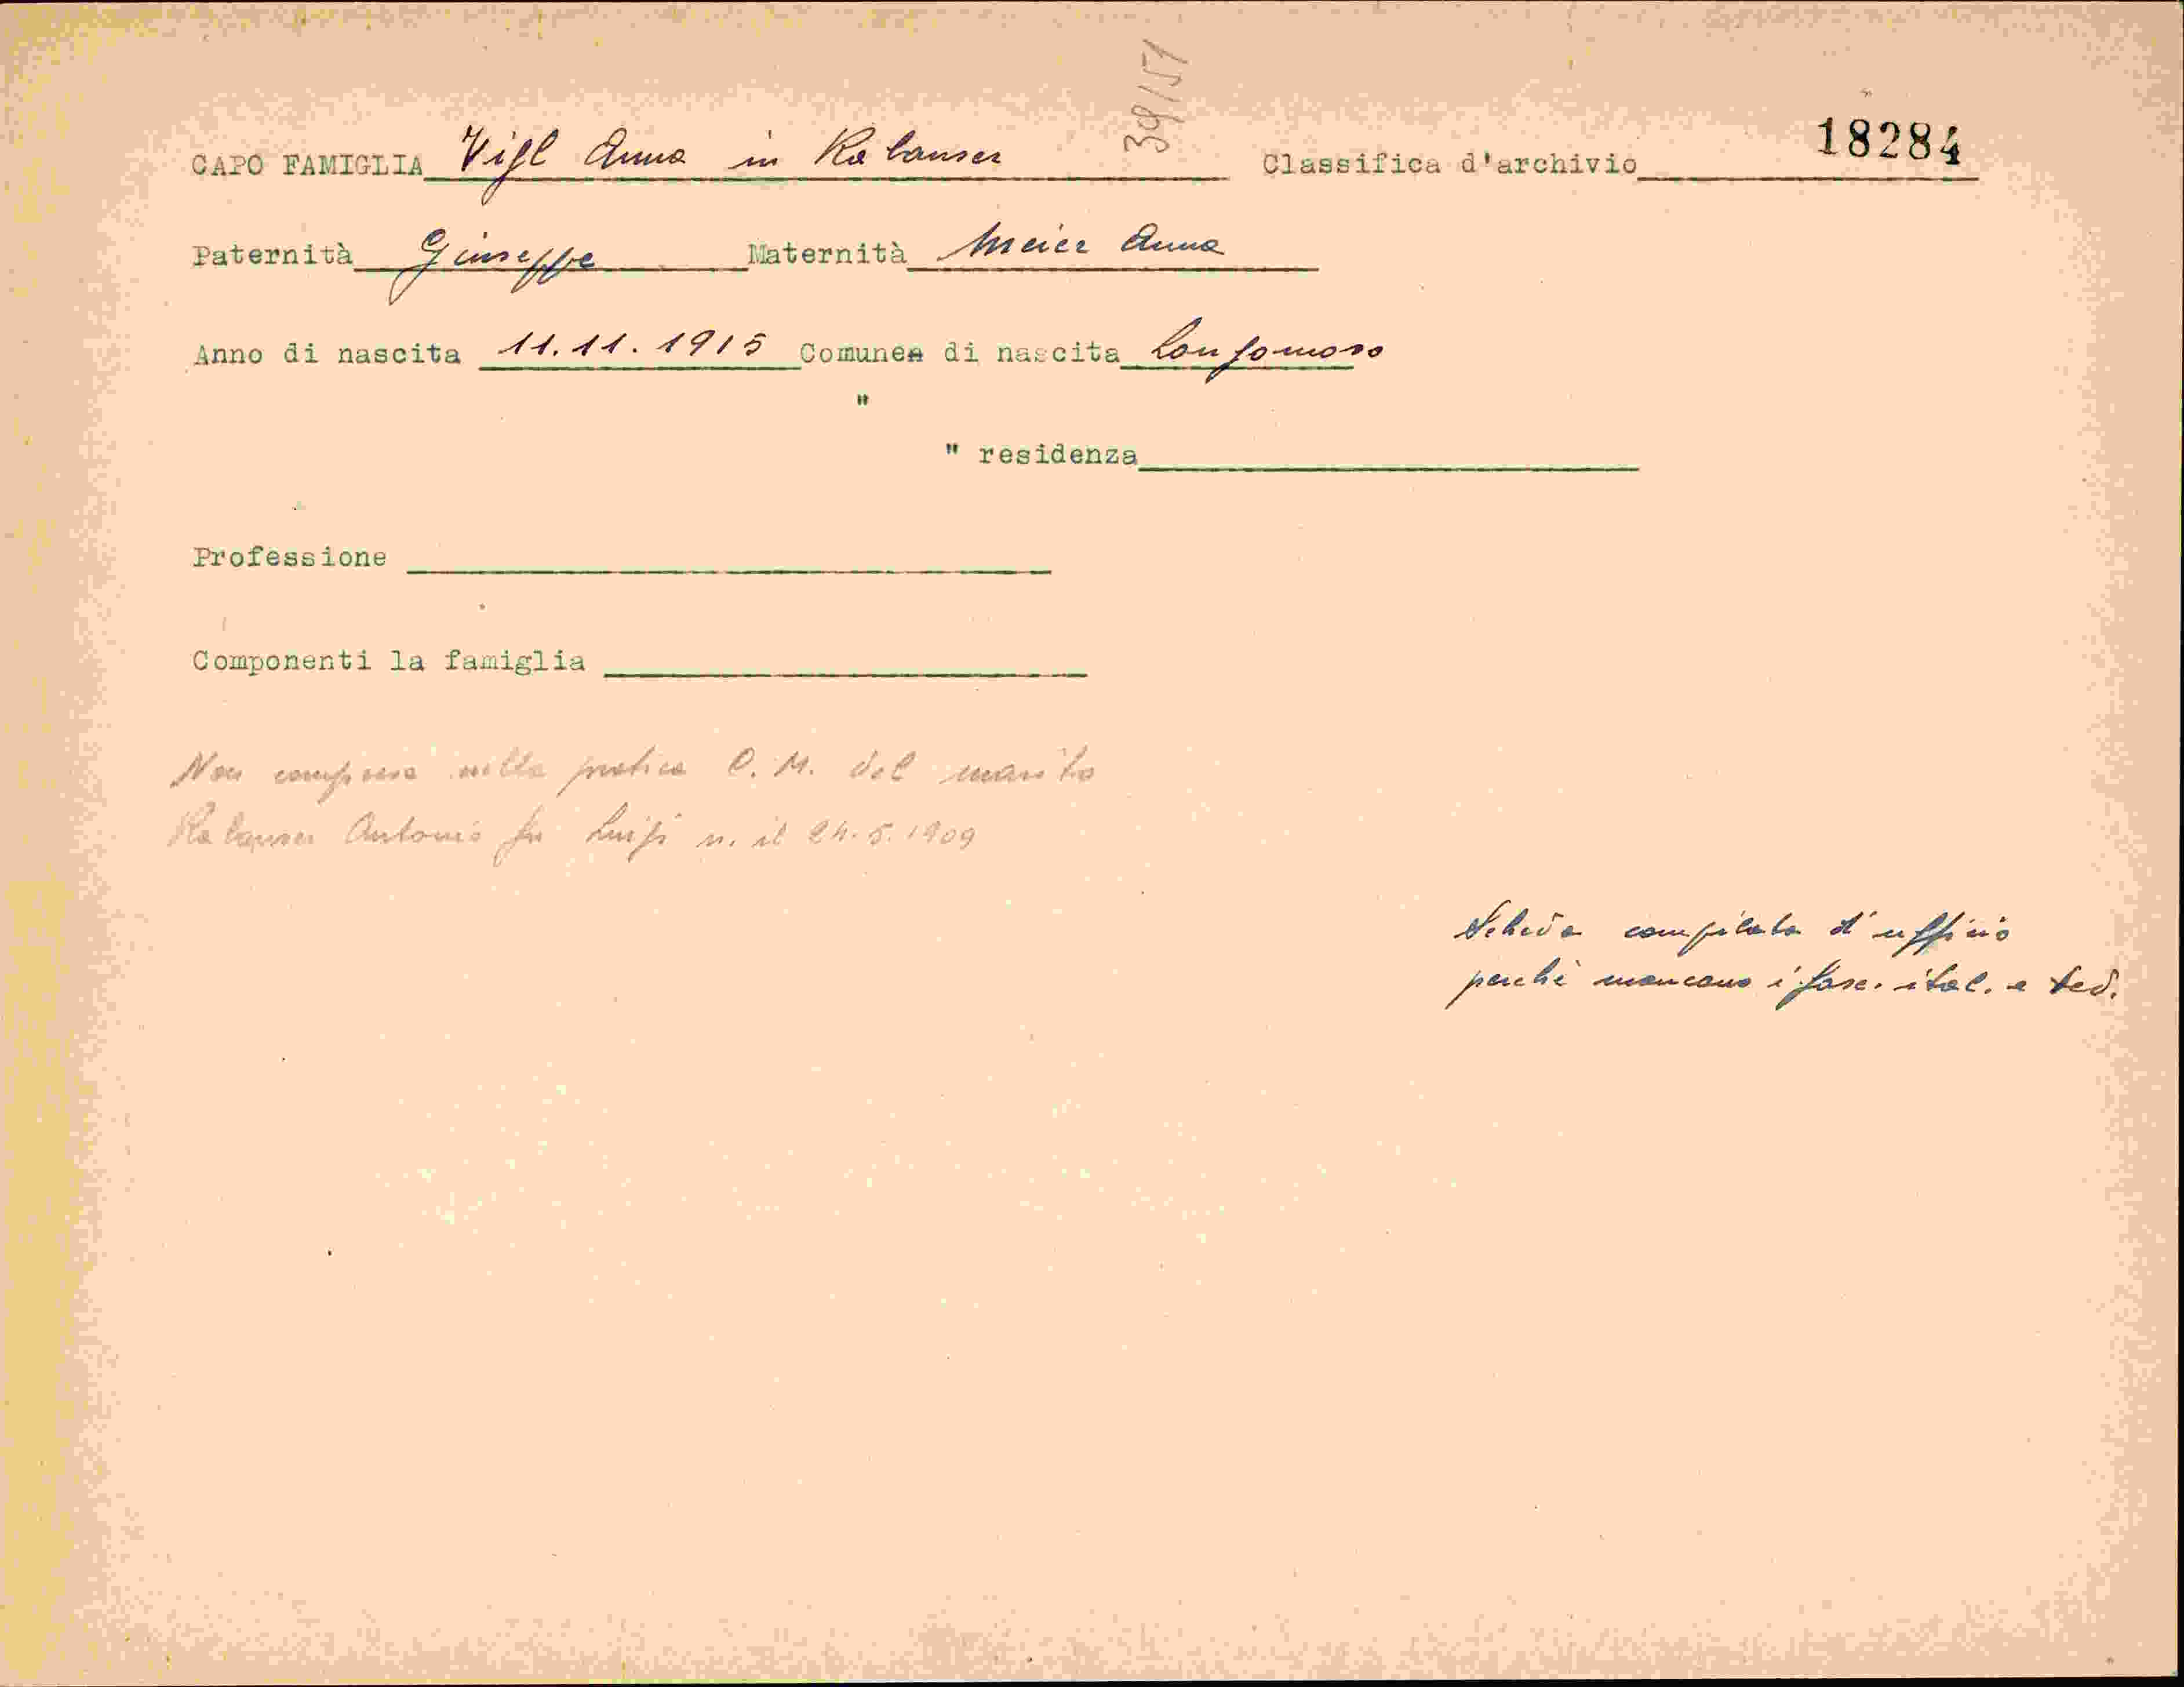 39/51
CAPO FAMIGLIA Vigl Anna in Rabanser Classifica d'archivio 18284
Paternità Giuseppe Maternità Meier Anna
Anno di nascita 11.11.1915 Comune di nascita Longomoso
"
" residenza
Professione
Componenti la famiglia
Non compresa nella pratica C. M. del marito
Rabanser Antonio fu Luigi n. il 24.5.1909
Scheda compilata d'ufficio
perchè mancano i fasc. ital. e ted.